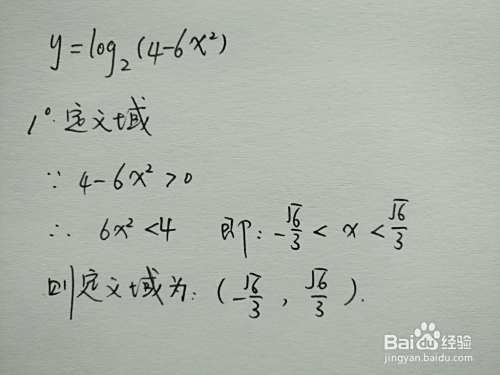 y=log₂(4-6x²)
1°.定义域
∵ 4-6x²>0
∴ 6x²<4 即:-√6/3<x<√6/3
则定义域为:(-√6/3,√6/3).
Baidu经验
jingyan.baidu.com